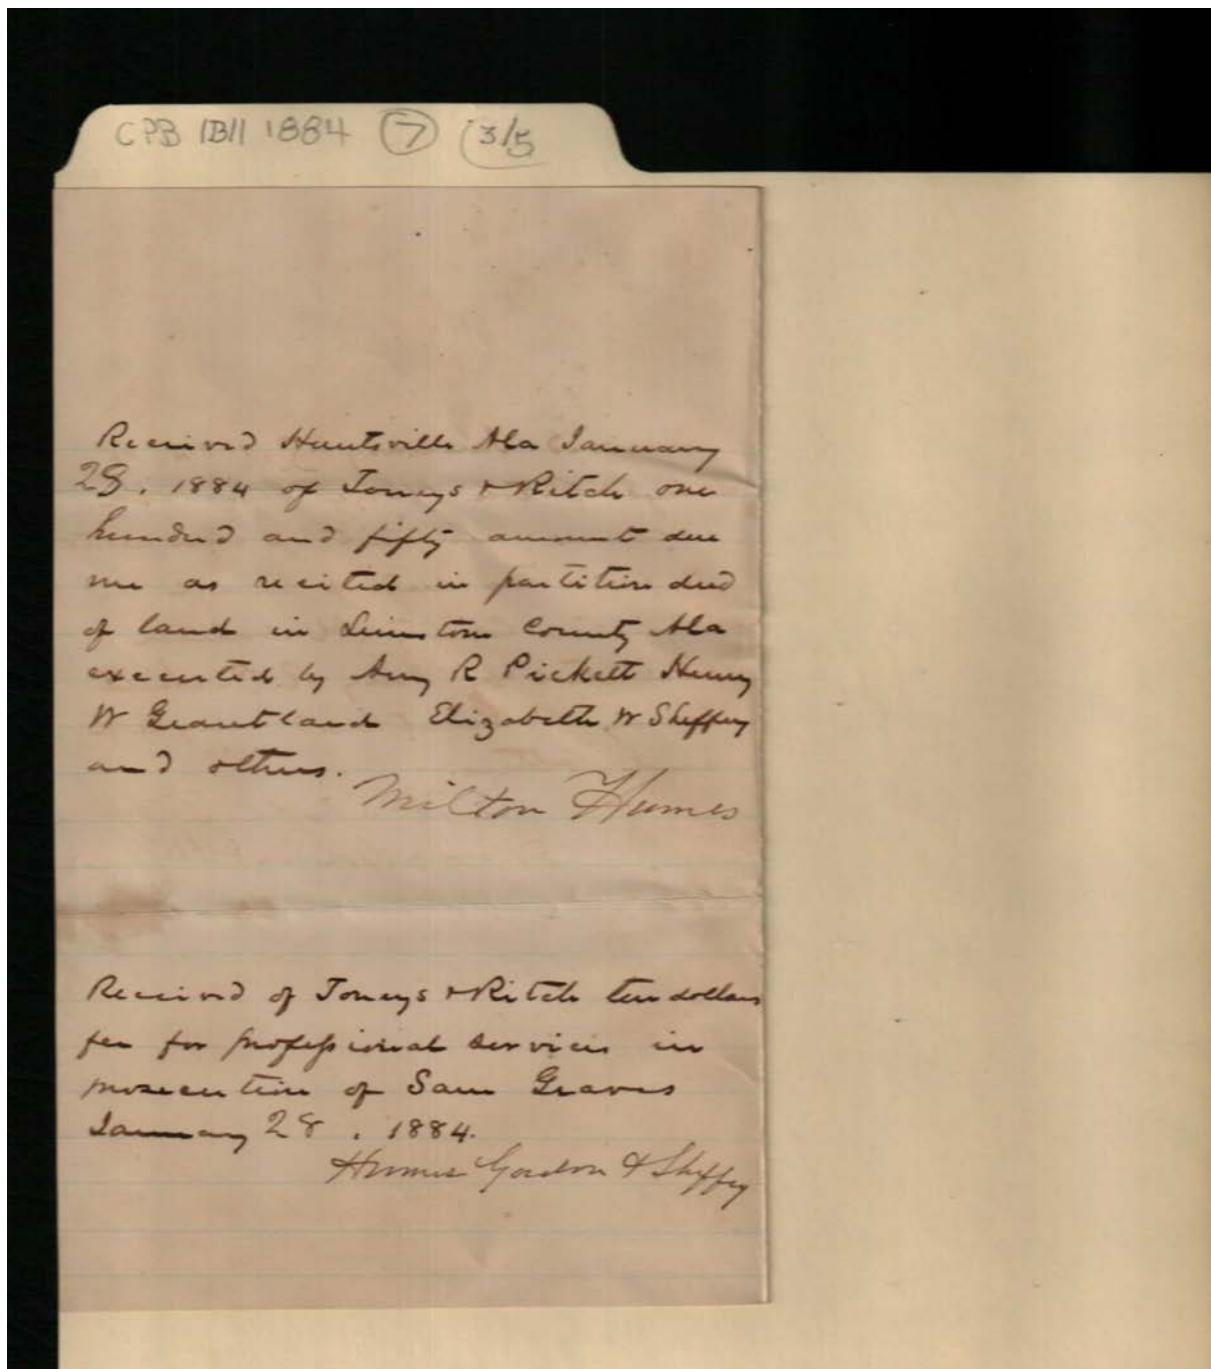 CPB IBII 1884 7 3/5
Received Huntsville Ala January
28. 1884 of Toneys & Ritch one
hundred and fifty amount due
me as recited in partition deed
of land in Limestone County Ala
executed by Amy R Pickett Henry
W Grantland Elizabeth W Sheffey
and others.
Milton Humes
Received of Toneys & Ritch ten dollars
fee for professional services in
prosecution of Sam Graves
January 28. 1884.
Humes Gordon & Sheffey